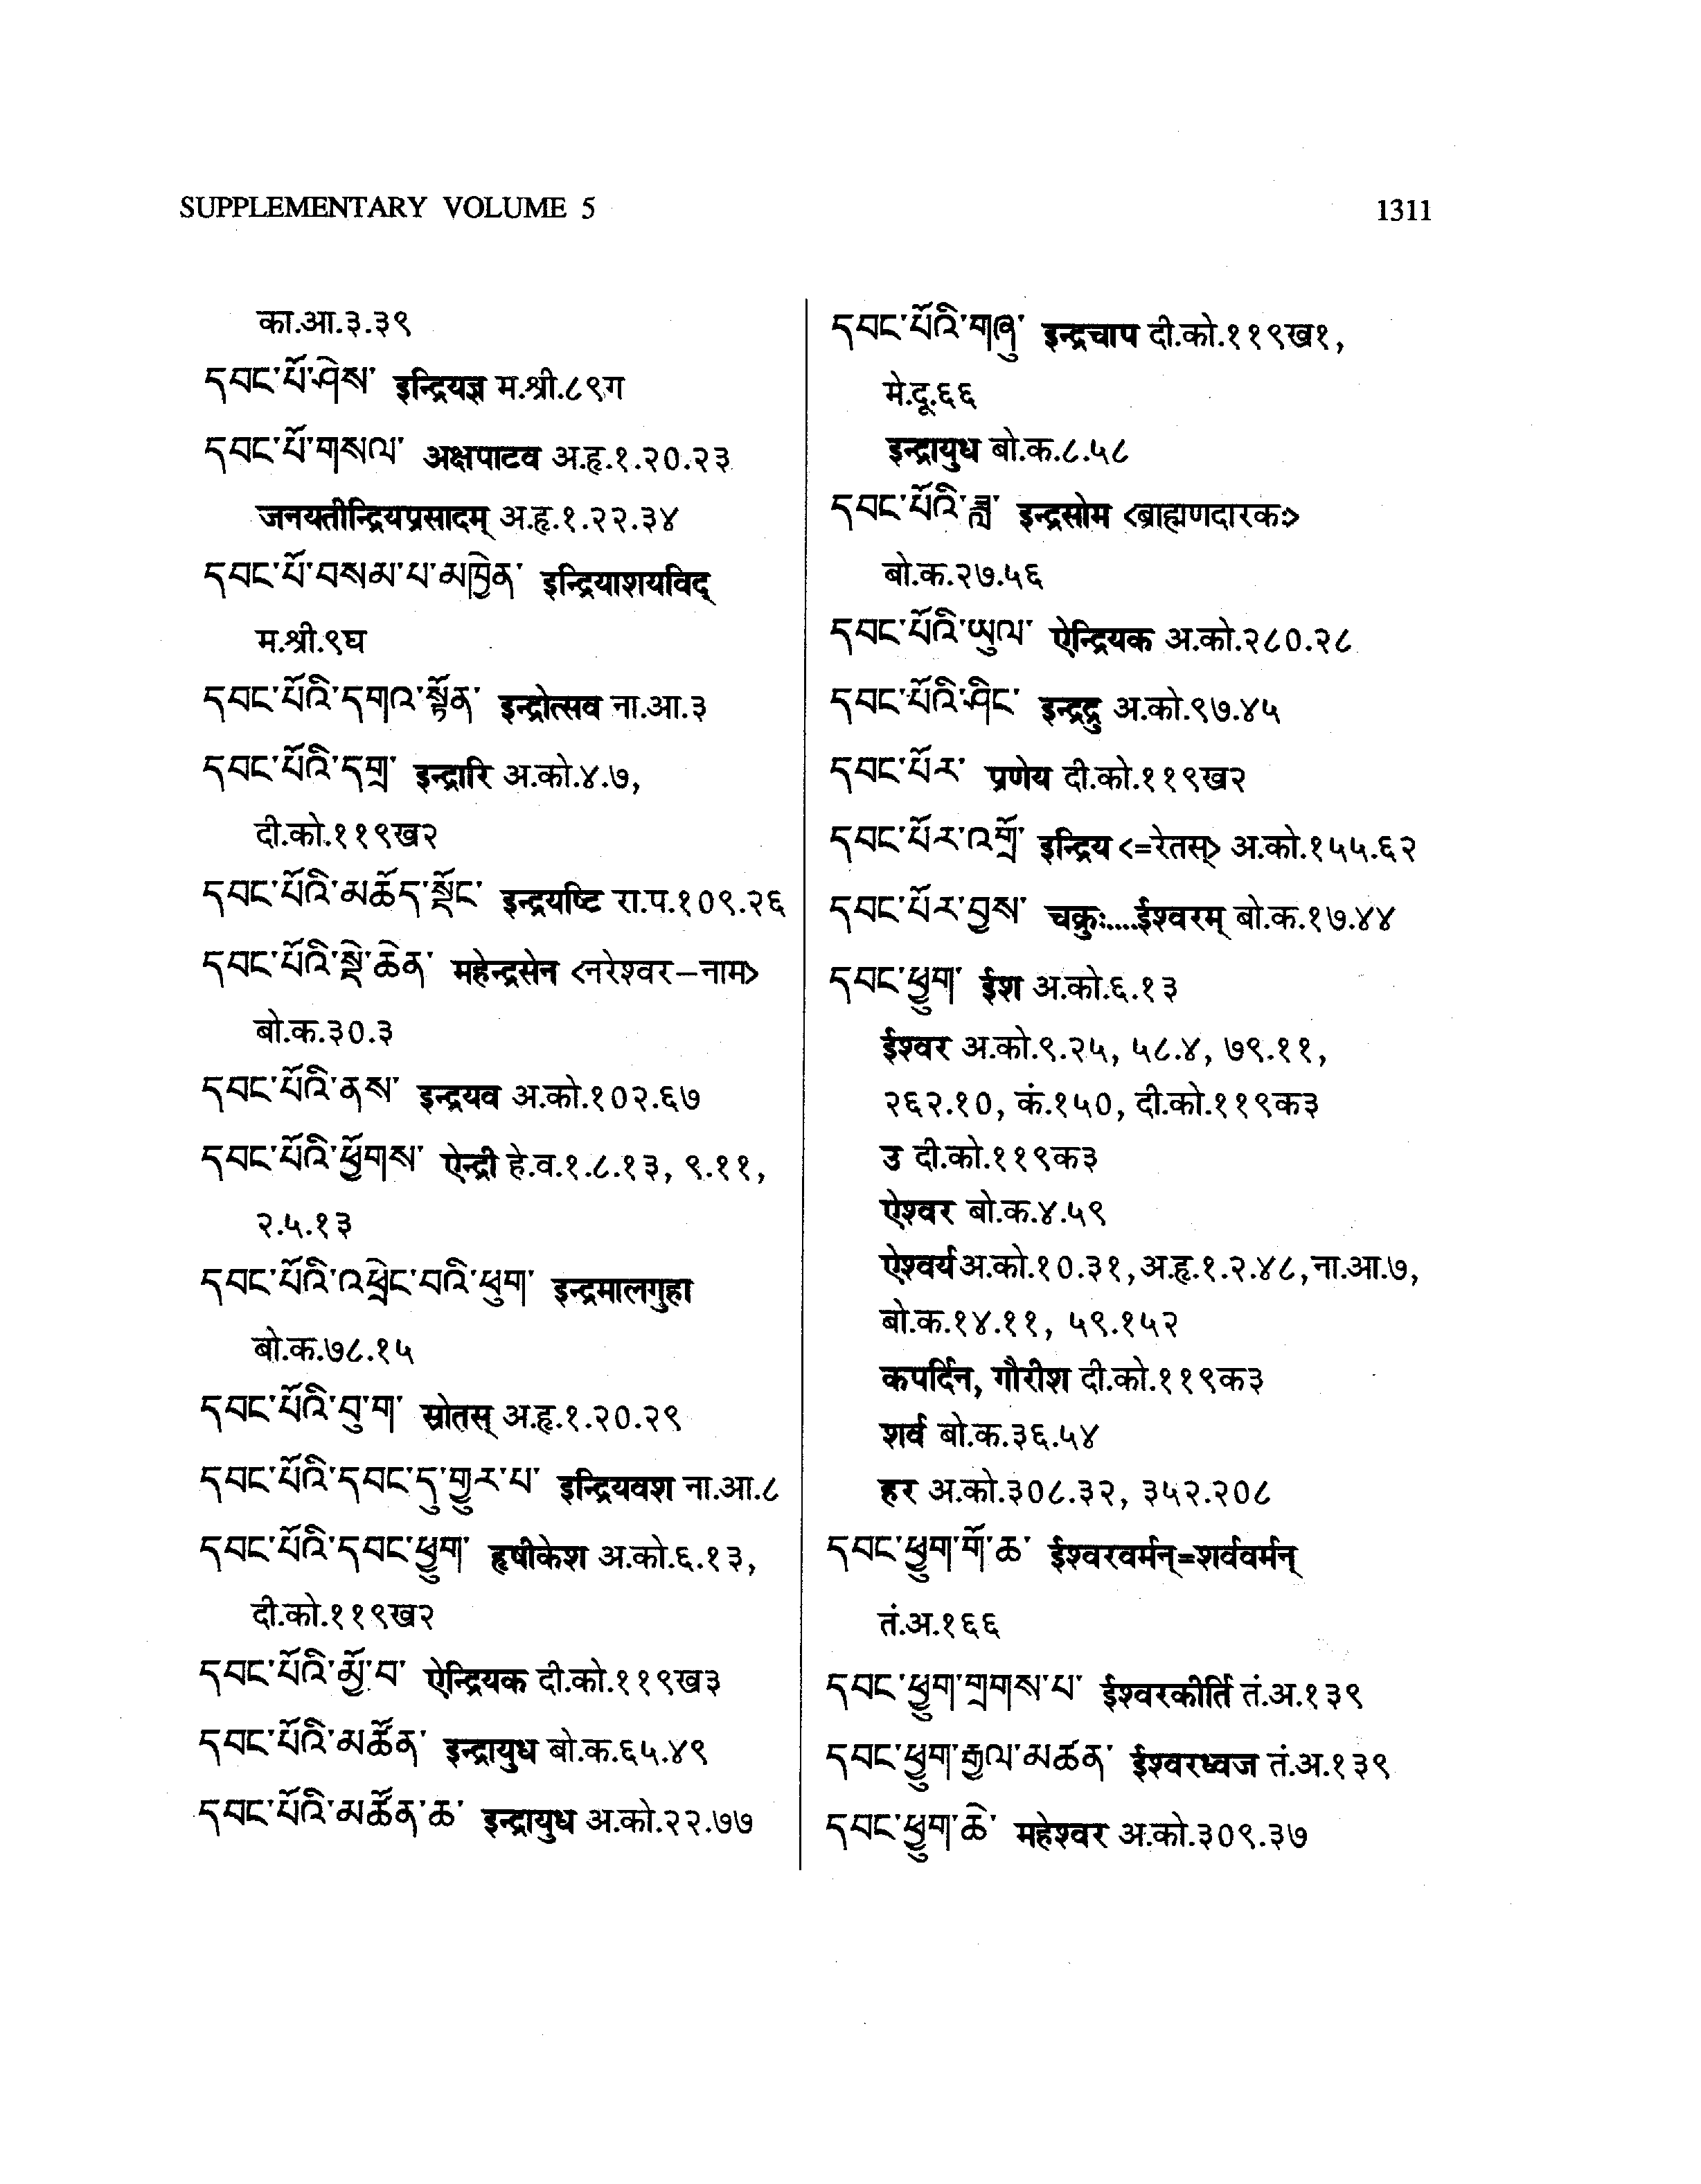 SUPPLEMENTARY VOLUME 5
1311
का.आ.३.३९
དབང་པོ་ཤེས་ इन्द्रियज्ञ म.श्री.८९ग
དབང་པོ་གསལ་ अक्षपाटव अ.हृ.१.२०.२३
जनयतीन्द्रियप्रसादम् अ.हृ.१.२२.३४
དབང་པོ་བསམ་པ་མཁྱེན་ इन्द्रियाशयविद्
म.श्री.९घ
དབང་པོའི་དགའ་སྟོན་ इन्द्रोत्सव ना.आ.३
དབང་པོའི་དགྲ་ इन्द्रारि अ.को.४.७,
दी.को.११९ख२
དབང་པོའི་མཆོད་སྡོང་ इन्द्रयष्टि रा.प.१०९.२६
དབང་པོའི་སྡེ་ཆེན་ महेन्द्रसेन <नरेश्वर–नाम>
बो.क.३०.३
དབང་པོའི་ནས་ इन्द्रयव अ.को.१०२.६७
དབང་པོའི་ཕྱོགས་ ऐन्द्री हे.व.१.८.१३, ९.११,
२.५.१३
དབང་པོའི་འཕྲེང་བའི་ཕུག་ इन्द्रमालगुहा
बो.क.७८.१५
དབང་པོའི་བུ་ག་ स्रोतस् अ.हृ.१.२०.२९
དབང་པོའི་དབང་དུ་གྱུར་པ་ इन्द्रियवश ना.आ.८
དབང་པོའི་དབང་ཕྱུག་ हृषीकेश अ.को.६.१३,
दी.को.११९ख२
དབང་པོའི་མྱོ་བ་ ऐन्द्रियक दी.को.११९ख३
དབང་པོའི་མཚོན་ इन्द्रायुध बो.क.६५.४९
དབང་པོའི་མཚོན་ཆ་ इन्द्रायुध अ.को.२२.७७
དབང་པོའི་གཞུ་ इन्द्रचाप दी.को.११९ख१,
मे.दू.६६
इन्द्रायुध बो.क.८.५८
དབང་པོའི་ཟླ་ इन्द्रसोम <ब्राह्मणदारकः>
बो.क.२७.५६
དབང་པོའི་ཡུལ་ ऐन्द्रियक अ.को.२८०.२८
དབང་པོའི་ཤིང་ इन्द्रद्रु अ.को.९७.४५
དབང་པོར་ प्रणेय दी.को.११९ख२
དབང་པོར་འགྲོ་ इन्द्रिय <=रेतस्> अ.को.१५५.६२
དབང་པོར་བྱས་ चक्रुः....ईश्वरम् बो.क.१७.४४
དབང་ཕྱུག་ ईश अ.को.६.१३
ईश्वर अ.को.९.२५, ५८.४, ७९.११,
२६२.१०, कं.१५०, दी.को.११९क३
उ दी.को.११९क३
ऐश्वर बो.क.४.५९
ऐश्वर्य अ.को.१०.३१, अ.हृ.१.२.४८, ना.आ.७,
बो.क.१४.११, ५९.१५२
कपर्दिन, गौरीश दी.को.११९क३
शर्व बो.क.३६.५४
हर अ.को.३०८.३२, ३५२.२०८
དབང་ཕྱུག་གོ་ཆ་ ईश्वरवर्मन्=शर्ववर्मन्
तं.अ.१६६
དབང་ཕྱུག་གྲགས་པ་ ईश्वरकीर्ति तं.अ.१३९
དབང་ཕྱུག་རྒྱལ་མཚན་ ईश्वरध्वज तं.अ.१३९
དབང་ཕྱུག་ཆེ་ महेश्वर अ.को.३०९.३७